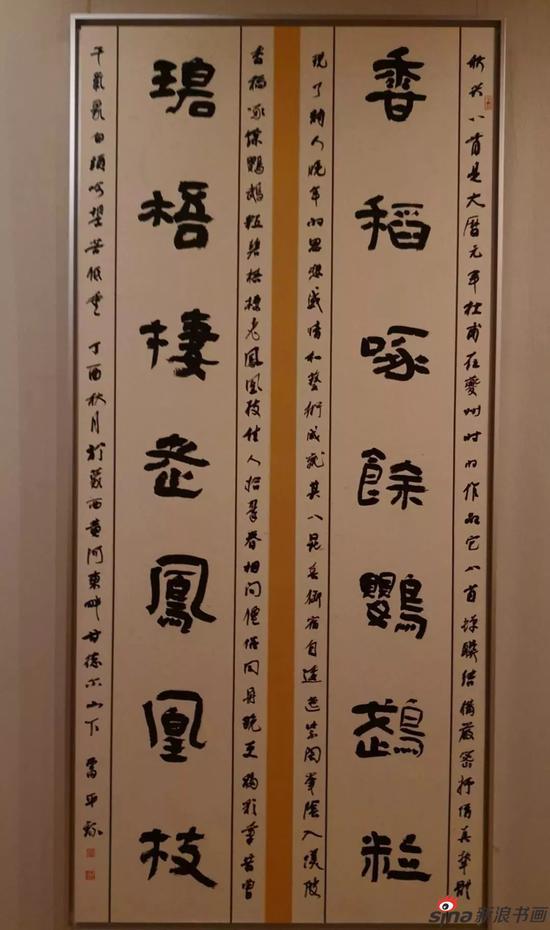 秋兴八首是大曆元年杜甫在夔州时的作品它八首蝉联结構嚴密抒情真挚體
香稻啄餘鸚鵡粒
现了詩人晚年的思想感情和藝術成就其八昆吾御宿自逶迤紫阁峯陰入渼陂
香稻啄餘鸚鵡粒碧梧棲老鳳凰枝佳人拾翠春相问僊侣同舟晚更移彩筆昔曾
碧梧棲老鳳凰枝
干氣象白頭吟望苦低垂 丁酉秋月於蒙西黄河東畔甘德尔山下 雷平
sina新浪书画